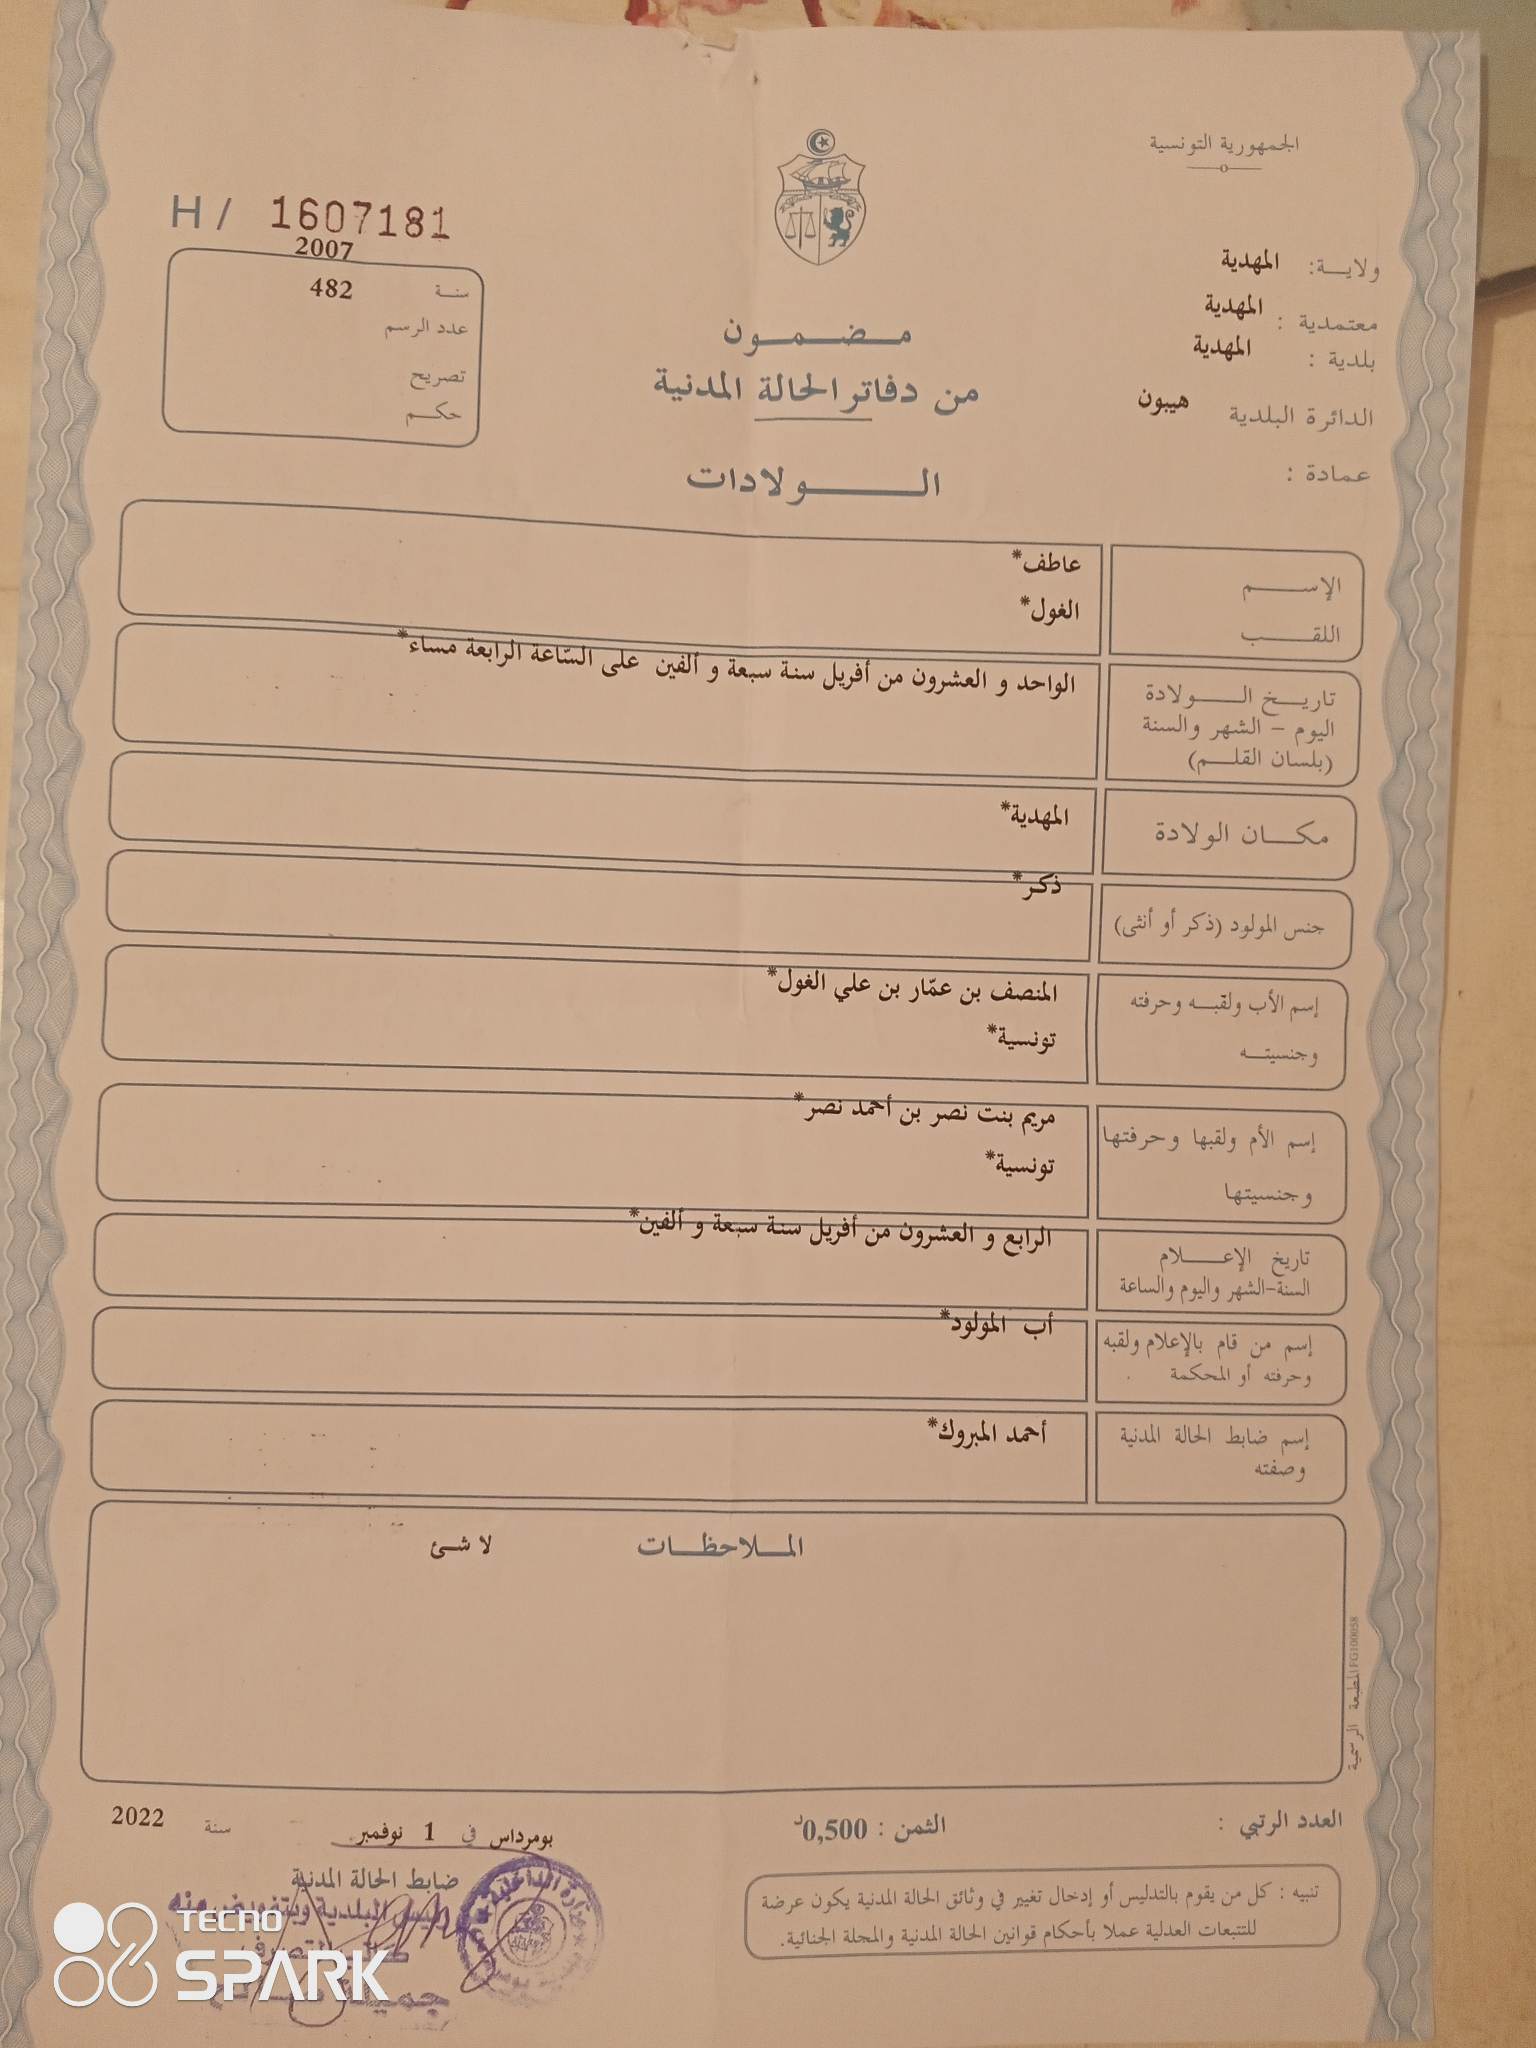 الجمهورية التونسية
H / 1607181
2007
سنة 482
عدد الرسم
تصريح
حكم
ولاية: المهدية
معتمدية : المهدية
بلدية : المهدية
الدائرة البلدية هيبون
عمادة :
مضمون
من دفاتر الحالة المدنية
الولادات
الإسم عاطف*
اللقب الغول*
تاريخ الولادة
اليوم - الشهر والسنة
(بلسان القلم)
الواحد و العشرون من أفريل سنة سبعة و ألفين على السّاعة الرابعة مساء*
مكان الولادة المهدية*
جنس المولود (ذكر أو أنثى) ذكر*
إسم الأب ولقبه وحرفته المنصف بن عمّار بن علي الغول*
وجنسيته تونسية*
إسم الأم ولقبها وحرفتها مريم بنت نصر بن أحمد نصر*
وجنسيتها تونسية*
تاريخ الإعلام الرابع و العشرون من أفريل سنة سبعة و ألفين*
السنة-الشهر واليوم والساعة
إسم من قام بالإعلام ولقبه أب المولود*
وحرفته أو المحكمة
إسم ضابط الحالة المدنية أحمد المبروك*
وصفته
الملاحظات لا شئ
المطبعة الرسمية FG100058
العدد الرتبي : الثمن : 0,500د
بومرداس في 1 نوفمبر سنة 2022
ضابط الحالة المدنية
تنبيه : كل من يقوم بالتدليس أو إدخال تغيير في وثائق الحالة المدنية يكون عرضة
للتتبعات العدلية عملا بأحكام قوانين الحالة المدنية والمجلة الجنائية.
البلدية وبتفويض منه
وزارة الداخلية
TECNO
SPARK